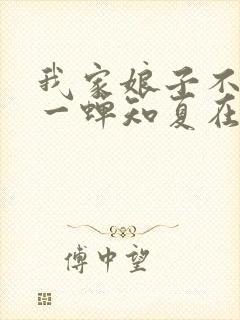 我家娘子不
一蝉知夏在
傅中望